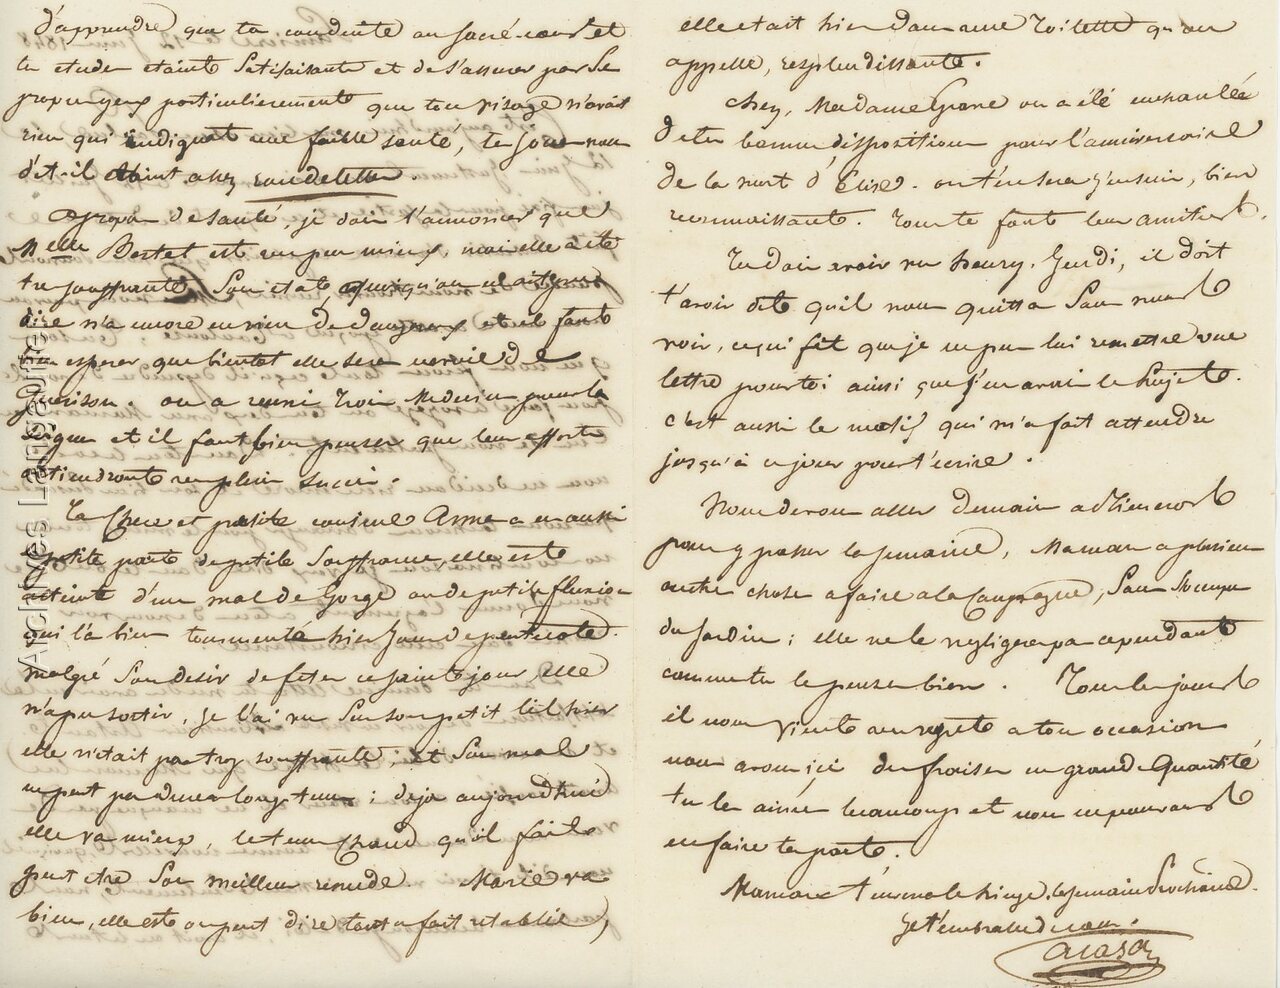 d'apprendre que ta conduite au sacré-coeur et
tes etudes etaint satisfaisante et de s'assurer par ses
propres yeux particulierement que ton visage n'avait
rien qui indiquat une faible santé, te sous-nous
dit-il
apropos de santé, je dois t'annoncer que
Melle Bertet est un peu mieux, mais elle a été
tres souffrante. Son etat, quoiqu'on
dire n'a encore eu rien de dangereux et il faut
bien esperer que bientot elle sera en voie de
Guérison. on a reuni trois Medecins pour la
et il faut bien penser que leur efforts
obtiendront un plein succes.
Ta chere et petite cousine Anna a eu aussi
sa petite part de petite souffrance, elle est
atteinte d'un mal de Gorge ou de petite fluxion
qui l'a bien tourmenté hier Jour de pentecote.
malgré son desir de feter ce saint jour, elle
n'a pu sortir. Je l'ai vu sur son petit lit hier
elle n'etait pas trop souffrante; et son mal
ne peut pas durer longtems; déja aujourd'hui
elle va mieux, le tems chaud qu'il fait
peut etre son meilleur remede. Marie va
bien, elle est on peut dire tout a fait retablie,
elle etait hier dans une toilette qu'on
appelle, resplendissante.
Chez, Madame Grane on a été enchantée
de tes bonnes dispositions pour l'anniversaire
de la mort d'Elise. on t'en sera j'en suis, bien
reconnaissante. Tous te font leur amitiés.
Tu dois avoir vu henry. Jeudi, il doit
t'avoir dit qu'il nous quitta sans nous
voir, ce qui fit que je ne pus lui remettre une
lettre pour toi ainsi que j'en avais le sujet.
c'est aussi le motif qui m'a fait attendre
jusqu'à ce jour pour t'écrire.
Nous devons aller demain a
pour y passer la semaine, Maman a plusieurs
autres choses a faire a la Campagne, sans s'occuper
du Jardin; elle ne le negligera pas cependant
comme tu le penses bien. Tous les jours
il nous vient un regret a ton occasion
nous avons ici des fraises en grande quantité
tu les aimes beaucoup et nous ne pouvons
en faire ta part.
Maman t'enverra le linge, la semaine prochaine.
Je t'embrasse
Archives Langeuttes